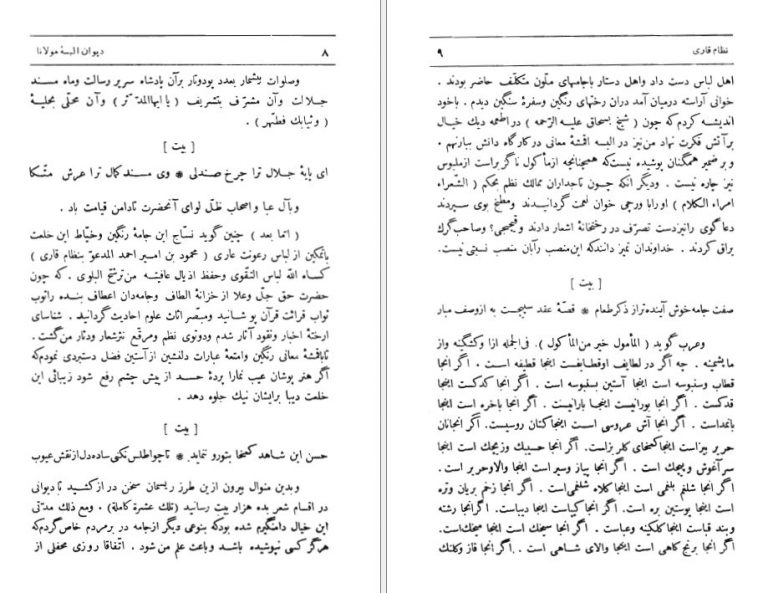 ۸ دیوان البسهٔ مولانا
وصلوات بیشمار بعدد پودوتار برآن پادشاه سریر رسالت وماه مسند
جلالت وآن مشرّف بتشریف ( یا ایهاالمدّثّر ) وآن محلّی بحلیهٔ
( وثیابك فطهّر ) .
[ بیت ]
ای پایهٔ جلال ترا چرخ صندلی * وی مسند کمال ترا عرش متّکا
وبآل عبا و اصحاب ظلّ لوای آنحضرت تادامن قیامت باد .
( امّا بعد ) چنین گوید نسّاج این جامهٔ رنگین وخیّاط این خلعت
باتمکین از لباس رعونت عاری ( محمود بن امیر احمد المدعوّ بنظام قاری )
کساه اللّه لباس التّقوی وحفظ اذیال عافیته من ترشّح البلوی . که چون
حضرت حق جلّ وعلا از خزانهٔ الطاف وجامه‌دان اعطاف بنده را ثوب
ثواب قرائت قرآن پوشانید ومبصّر اثاث علوم احادیث گردانید . شناسای
ارختهٔ اخبار ونقود آثار شدم ودوتوی نظم ومرقّع نثرشعار ودثار من گشت .
تاباقمشهٔ معانی رنگین وامتعهٔ عبارات دلنشین از آستین فضل دستبردی نمودم که
اگر هنر پوشان عیب نمارا پردهٔ حسد از پیش چشم رفع شود زیبائی این
خلعت دیبا برایشان نیك جلوه دهد .
[ بیت ]
حسن این شاهد کمخا بتورو ننماید . تاچواطلس نکنی ساده دل از نقش عیوب
وبدین منوال بیرون ازین طرز ریسمان سخن در ازکشید تا دیوانی
در اقسام شعر بده هزار بیت رسانید (تلك عشرة کاملة) . ومع ذلك مدّتی
این خیال دامنگیرم شده بودکه بنوعی دیگر ازجامه در برمردم خاص گردم که
هرگز کسی نپوشیده باشد وباعث علم من شود . اتّفاقا روزی محفلی از
نظام قاری ۹
اهل لباس دست داد واهل دستار باجامهای ملّون متکلّف حاضر بودند .
خوانی آراسته درمیان آمد دران رختهای رنگین وسفرهٔ سنگین دیدم . باخود
اندیشه کردم که چون ( شیخ بسحاق علیه الرّحمه ) در اطعمه دیك خیال
بر آتش فکرت نهاد من نیز در البسه اقمشهٔ معانی در کارگاه دانش ببار نهم .
و بر ضمیر همگنان پوشیده نیست که همچنانچه ازمأکول ناگزراست ازملبوس
نیز چاره نیست . ودیگر آنکه چون تاجداران ممالك نظم بحکم ( الشّعراء
امراء الکلام ) اورا با ورچی خوان نعمت گردانیدند ومطبخ بوی سپردند
دعا گوی رانیزدست تصرّف در رختخانهٔ اشعار دارند وقیچی‌چی؟ وصاحب‌گرك
یراق کردند . خداوندان تمیز دانند که این منصب رابآن منصب نسبتی نیست.
[ بیت ]
صفت جامه خوش آینده تراز ذکر طعام * قصّهٔ عقد سلیجت به ازوصف مبار
وعرب گوید ( المأمول خیر من المأکول ) . فی الجمله ازا وکشکینه واز
ما پشمینه . چه اگر در لطایف اوقطایفست اینجا قطیفه است . اگر آنجا
قطاب وسنبوسه است اینجا آستین بسنبوسه است . اگر آنجا کدکست اینجا
قدکست . اگر آنجا بورانیست اینجا بارانیست. اگر آنجا باخره است اینجا
بانمداست . اگر آنجا آش عروسی است اینجا کتان روسیست. اگر آنجا نان
حریر بیزاست اینجا کمخای کلریزاست. اگر آنجا حسیبك وزیجك است اینجا
سر آغوش وپیچك است . اگر آنجا پیاز وسیر است اینجا والا وحریر است .
اگر آنجا شلغم بلغمی است اینجا کلاه شلغمی است . اگر آنجا زخم بریان وتره
است اینجا پوستین بره است. اگر آنجا کیپاست اینجا دیباست. اگر آنجا رشته
وبند قباست اینجا کلکینه وعباست . اگر آنجا سیخك است اینجا میخك است.
اگر آنجا برنج کاهی است اینجا والای شاهی است . اگر آنجا قاز وکلنك